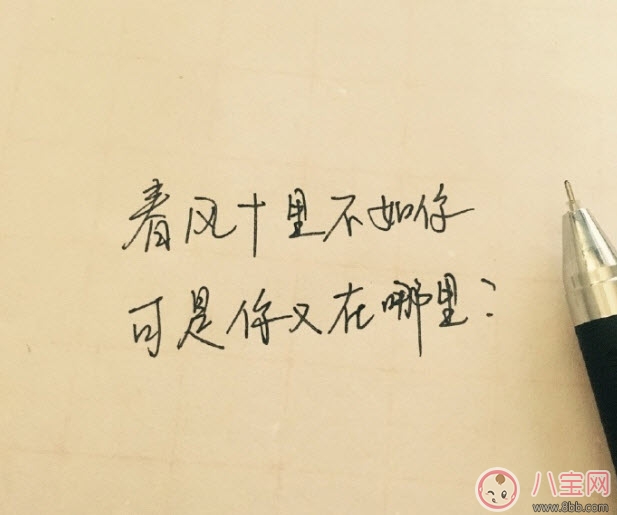 春风十里不如你
可是你又在哪里?
八宝网
www.8bb.com